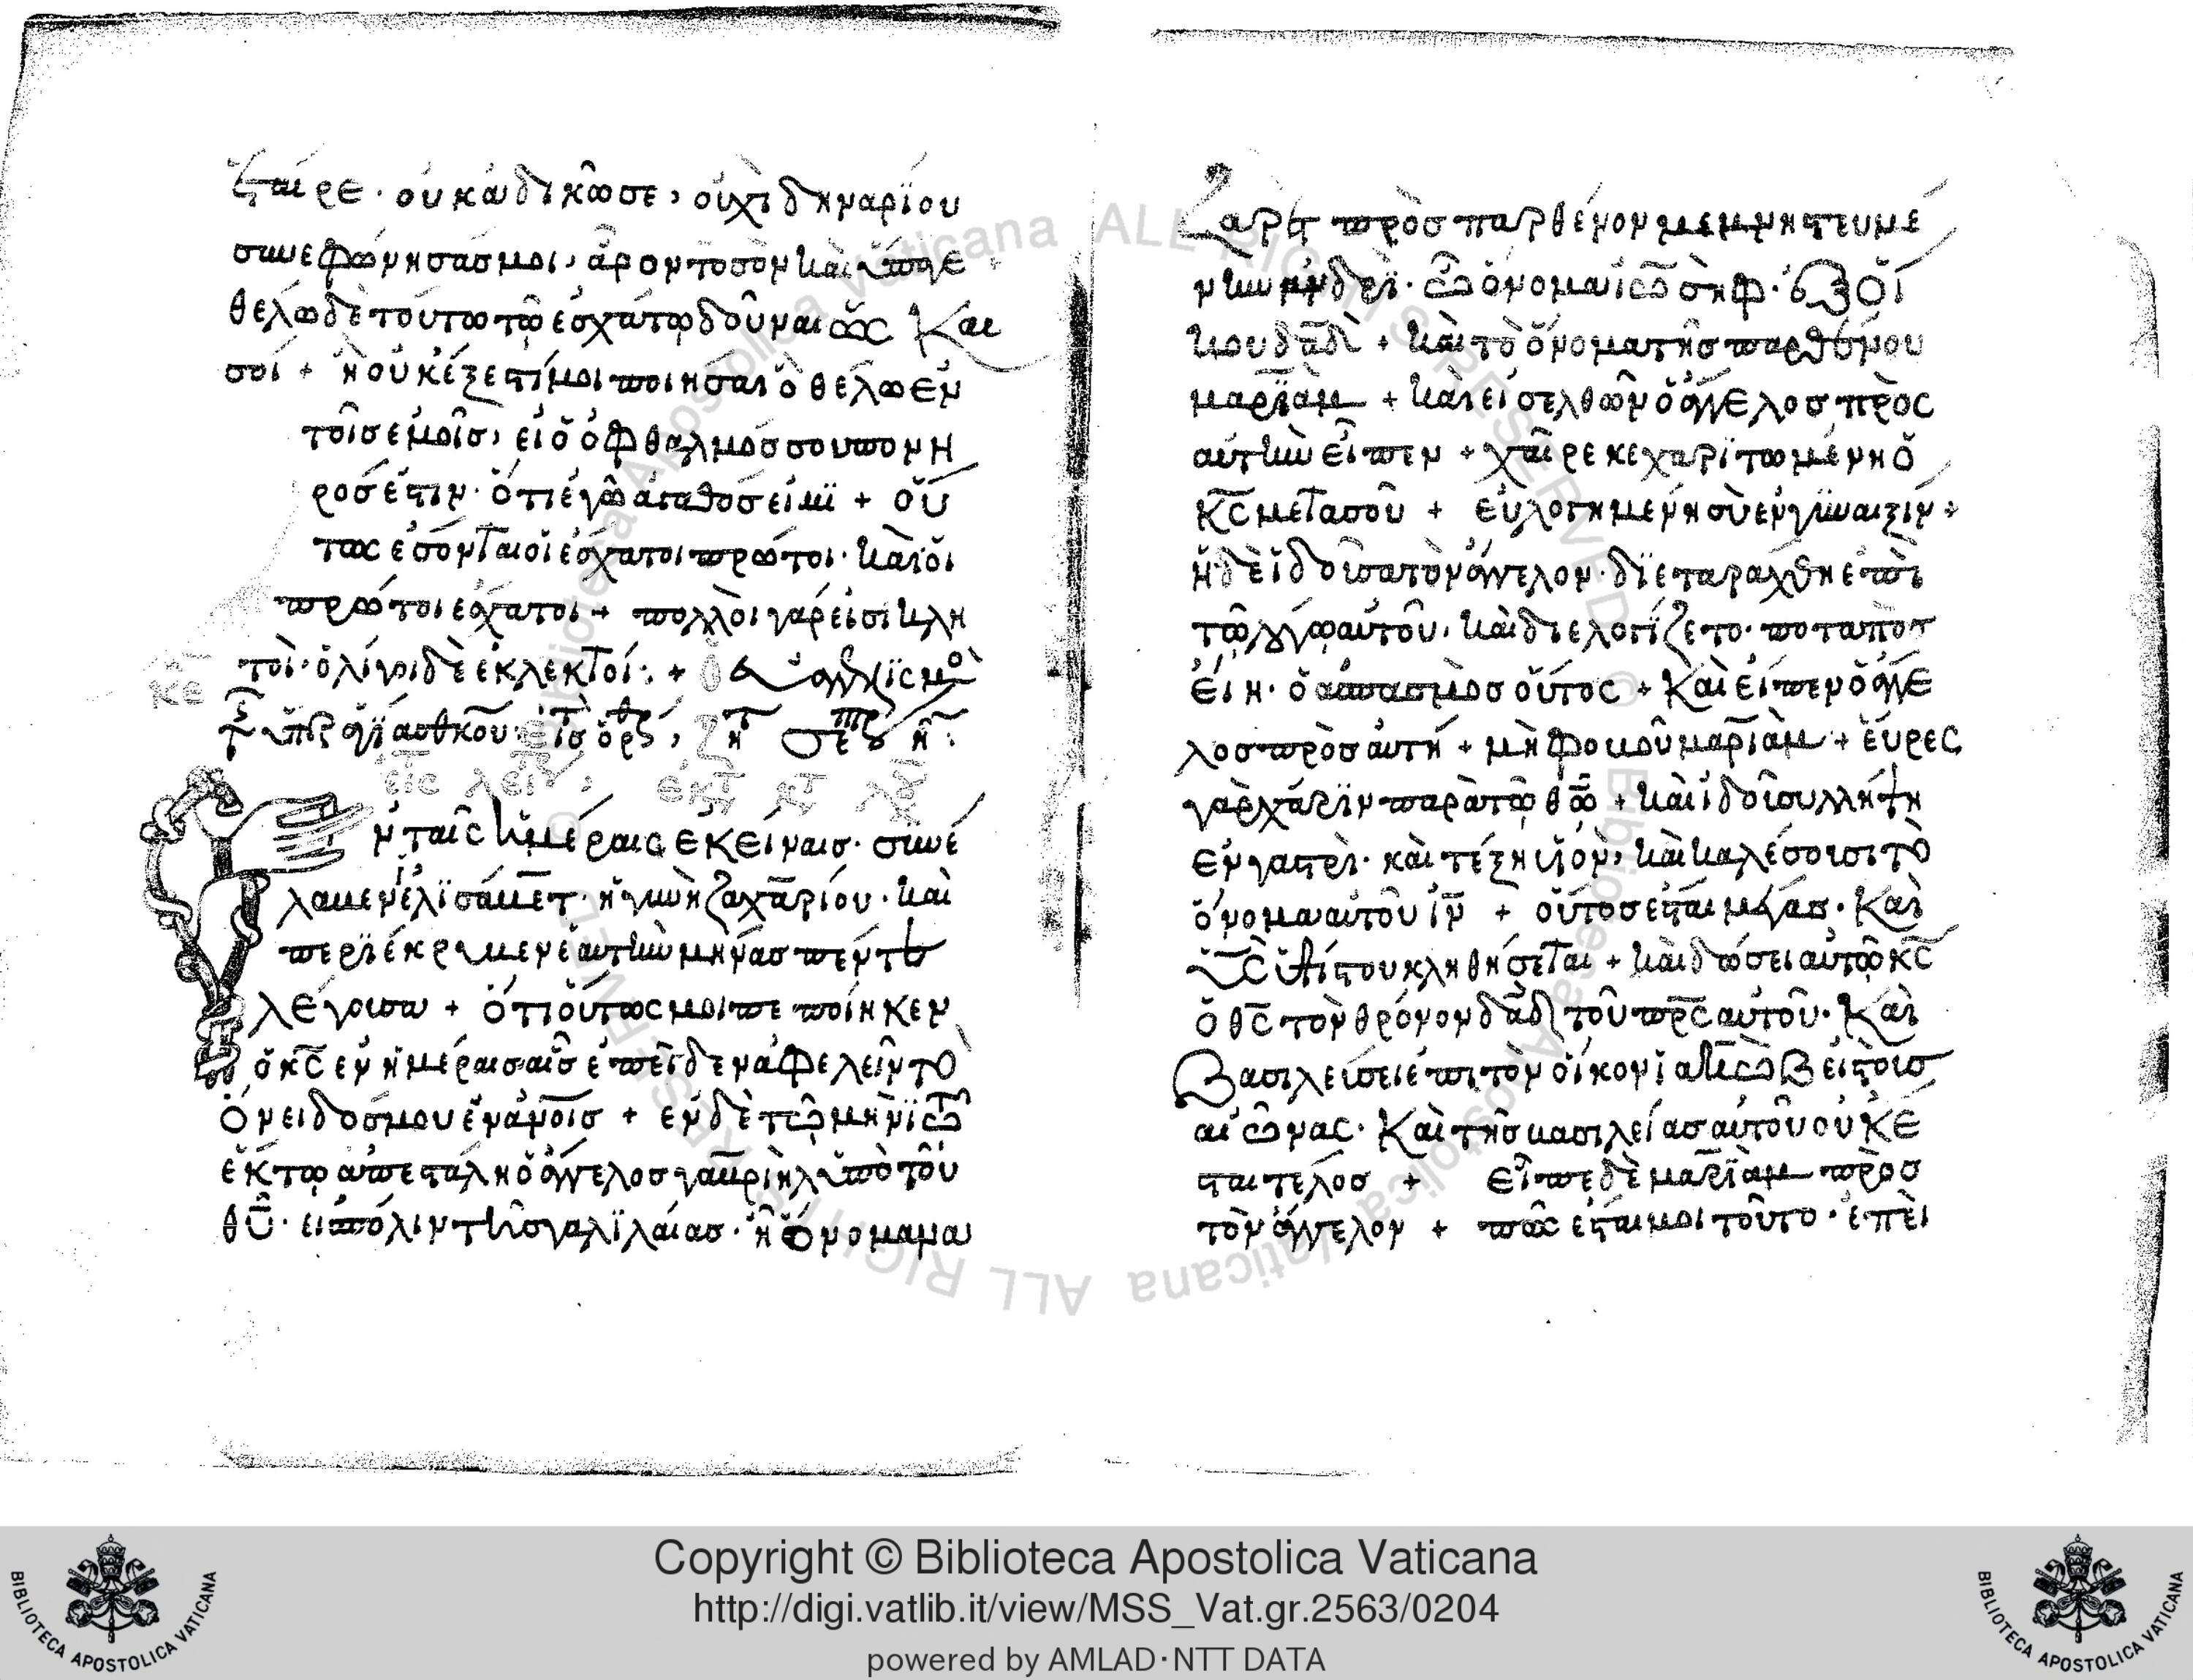 ταίρε· οὐκ ἀδικῶ σε, οὐχὶ δηναρίου
συνεφώνησάς μοι, ἆρον τὸ σὸν καὶ ὕπαγε
θέλω δὲ τούτω τῶ ἐσχάτω δοῦναι ὡς Και
σοί + ἢ οὐκ ἔξεστί μοι ποιῆσαι ὃ θέλω ἐν
τοῖς ἐμοῖς, εἰ ὁ ὀφθαλμός σου πονη
ρός ἐστιν· ὅτι ἐγὼ ἀγαθός εἰμϊ + οὕ
τως ἔσονται οἱ ἔσχατοι πρῶτοι· καὶ οἱ
πρῶτοι ἔσχατοι + πολλοὶ γάρ εἰσι κλη
τοὶ· ὀλίγοι δὲ ἐκλεκτοί: +
ν ταῖς ἡμέραις ἐκείναισ· συνέ
λαβεν ἐλϊσάβετ· ἡ γυνὴ ζαχαρίου· καὶ
περϊέκρυβεν ἑαυτὴν μῆνας πέντε
λέγουσα + ὅτι οὕτως μοι πεποίηκεν
ὁ κς ἐν ἡμέραις αἷς ἐπεῖδεν ἀφελεῖν τὸ
ὄνειδός μου ἐν ἀνοις + ἐν δὲ τῶ μηνὶ τῶ
ἕκτω ἀπεστάλη ὁ ἄγγελος γαβριὴλ ὑπὸ τοῦ
θυ· εἰς πόλιν τῆς γαλϊλαίας· ἧ ὄνομα να
ζαρετ πρὸς παρθένον μεμνηστευμέ
νην ἀνδρϊ· ὧ ὄνομα ἰωσὴφ· ἐξ οἴ
κου δαδ + καὶ τὸ ὄνομα τῆς παρθένου
μαρϊὰμ + καὶ εἰσελθὼν ὁ ἄγγελος πρὸς
αὐτὴν εἶπεν + χαῖρε κεχαριτωμένη ὁ
κς μετὰ σοῦ + εὐλογημένη σὺ ἐν γϋναιξίν +
ἡ δὲ ἰδοῦσα τὸν ἄγγελον· δϊεταράχθη ἐπὶ
τῶ λόγω αὐτοῦ· καὶ διελογίζετο· ποταπὸς
εἴη· ὁ ἀσπασμὸς οὗτος + Καὶ εἶπεν ὁ ἄγγε
λος πρὸς αὐτή + μὴ φοβοῦ μαριὰμ + εὗρες
γὰρ χάριν παρὰ τῶ θω + καὶ ἰδοὺ συλλήψη
ἐν γαστρὶ· καὶ τέξη υἱὸν, καὶ καλέσεις τὸ
ὄνομα αὐτοῦ ιν + οὗτος ἔσται μέγας· Καὶ
υς ὑψίστου κληθήσεται + καὶ δώσει αὐτῶ κς
ὁ θς τὸν θρόνον δαδ τοῦ πρς αὐτοῦ· Καὶ
Βασιλεύσει ἐπὶ τὸν οἶκον ἰακὼβ εἰς τοὺς
αἰῶνας· Καὶ τῆς βασιλείας αὐτοῦ οὐκ ἔ
σται τέλος + εἶπε δὲ μαρϊὰμ πρὸς
τὸν ἄγγελον + πῶς ἔσται μοι τοῦτο· ἐπεὶ
Copyright © Biblioteca Apostolica Vaticana
http://digi.vatlib.it/view/MSS_Vat.gr.2563/0204
powered by AMLAD·NTT DATA
BIBLIOTECA APOSTOLICA VATICANA
BIBLIOTECA APOSTOLICA VATICANA